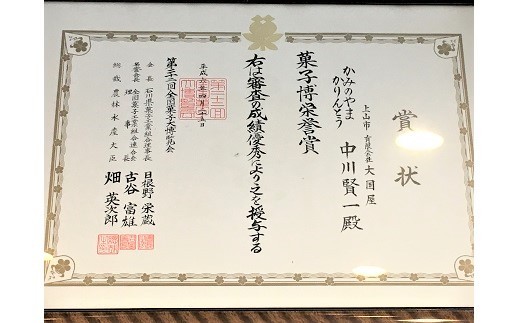 賞状
かみのやま
かりんとう
上山市 有限会社 大国屋
中川賢一殿
菓子博栄誉賞
右は審査の成績優秀により之を授与する
平成六年四月二十五日
第二十二回全国菓子大博覧会
会長 石川県菓子工業組合理事長 日根野栄蔵
名誉会長 全国菓子工業組合連合会理事長 古谷富雄
総裁 農林水産大臣 畑英次郎